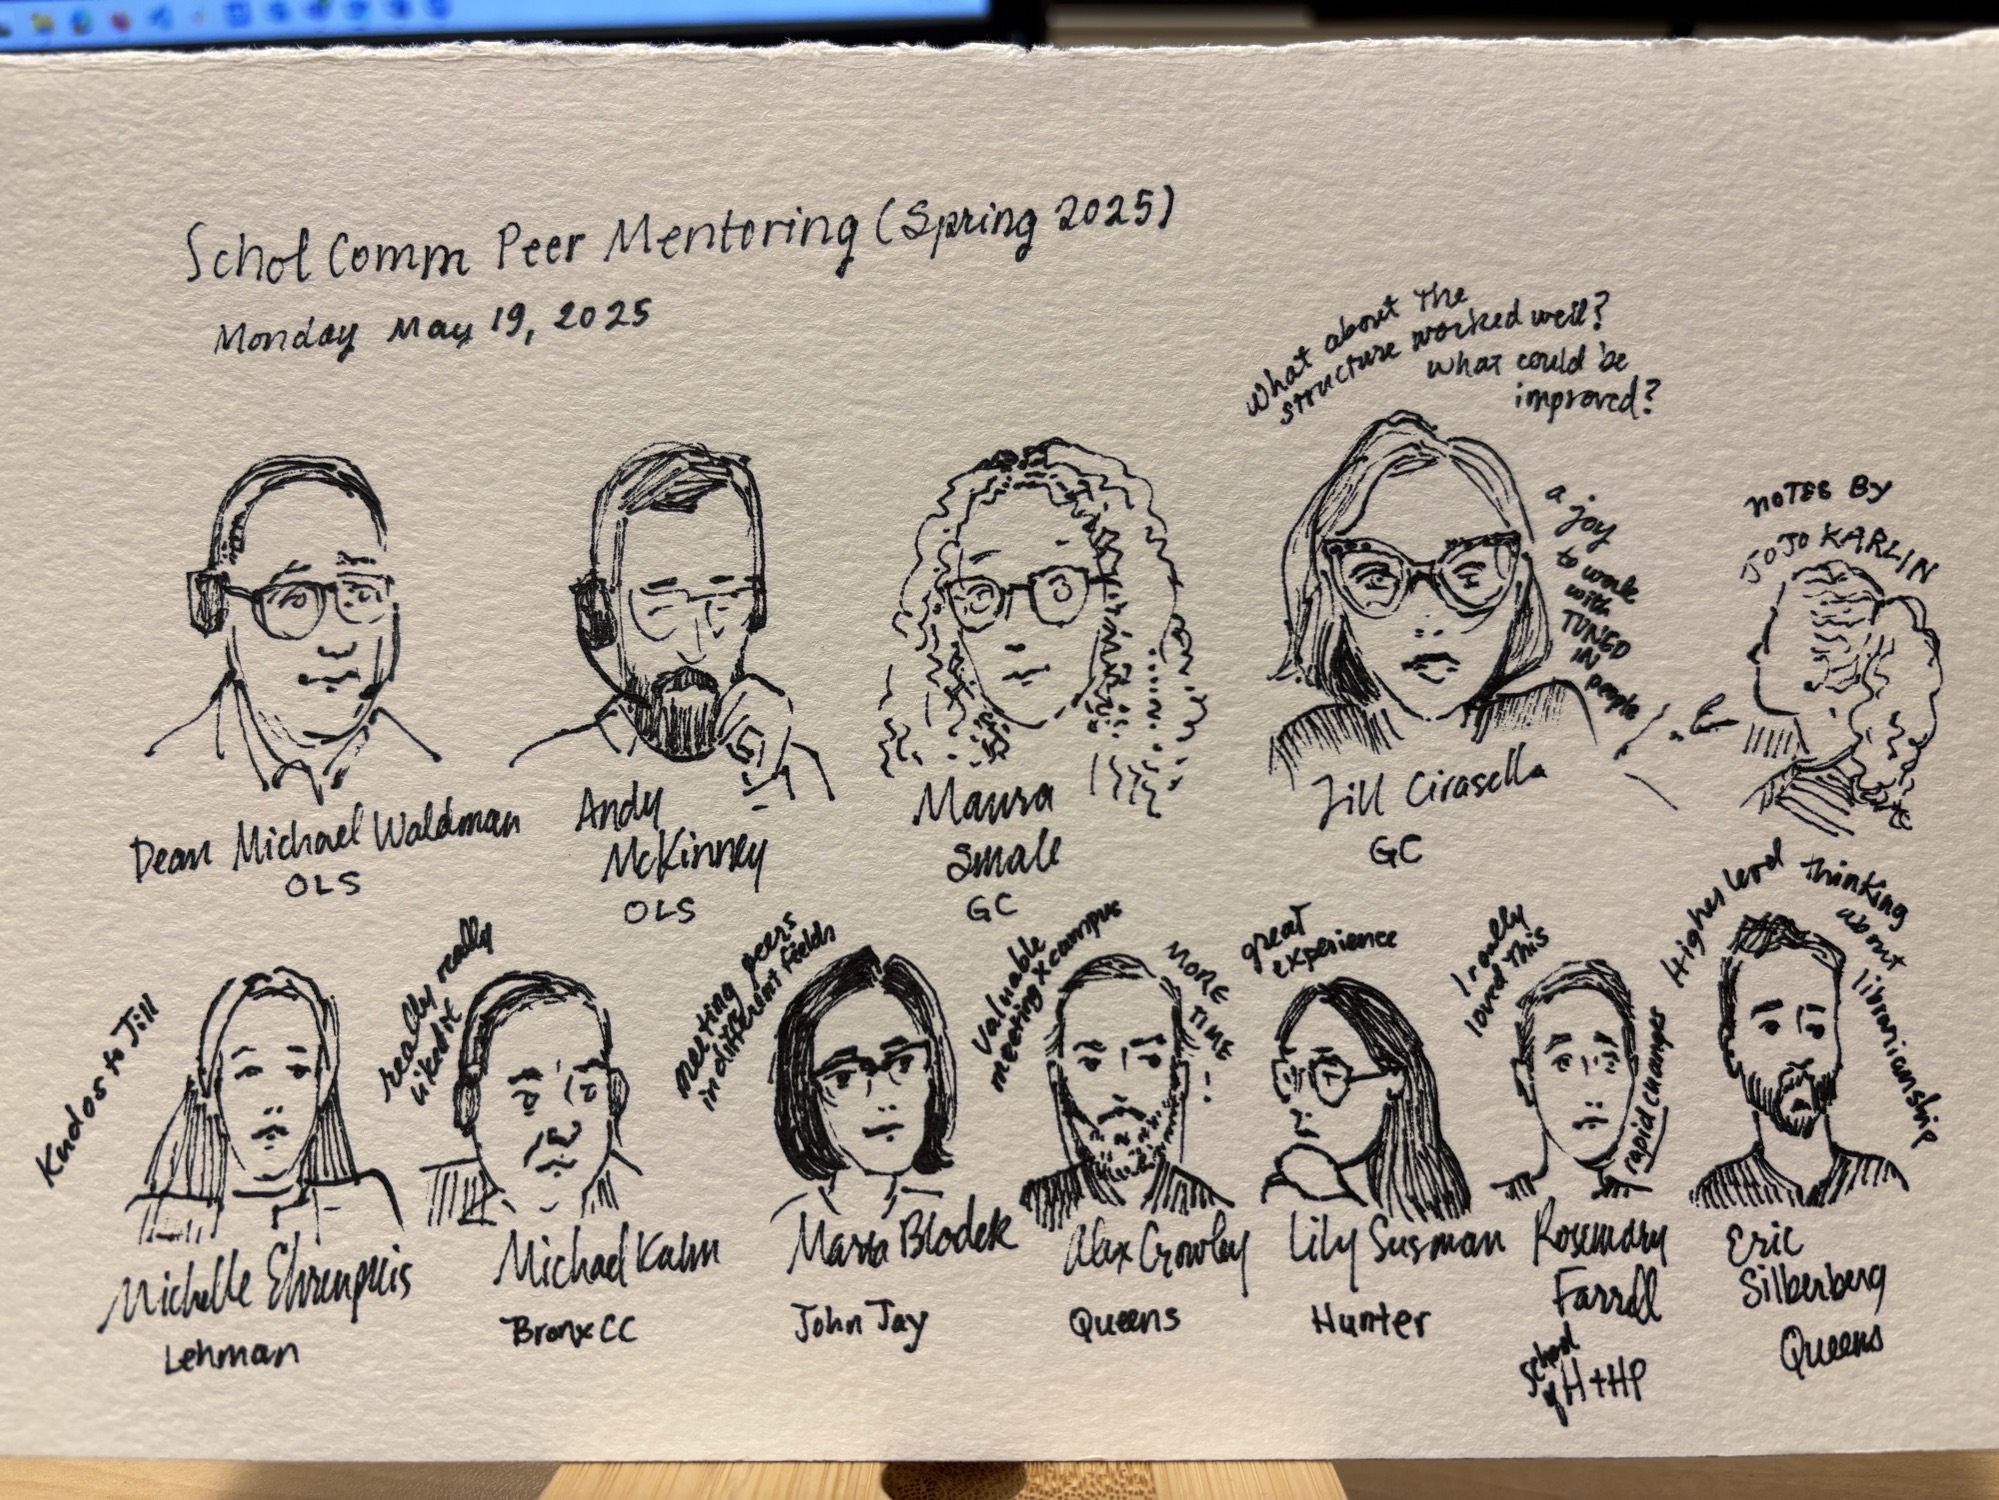 Schol Comm Peer Mentoring (Spring 2025)
Monday May 19, 2025
What about the
structure worked well?
What could be
improved?
a
joy
to work
with
TUNED
IN
people
NOTES BY
JOJO KARLIN
Dean Michael Waldman
OLS
Andy
McKinney
OLS
Maura
Smale
GC
Jill Cirasella
GC
Kudos to Jill
Michelle Ehrenpreis
Lehman
really really
liked it
Michael Kahn
Bronx CC
meeting peers
in different fields
Marta Bladek
John Jay
valuable
meeting x campus
MORE
TIME!
Alex Crowley
Queens
great
experience
Lily Susman
Hunter
I really
loved this
rapid changes
Rosemary
Farrell
School
of H+HP
Higher level thinking
about
librarianship
Eric
Silberberg
Queens